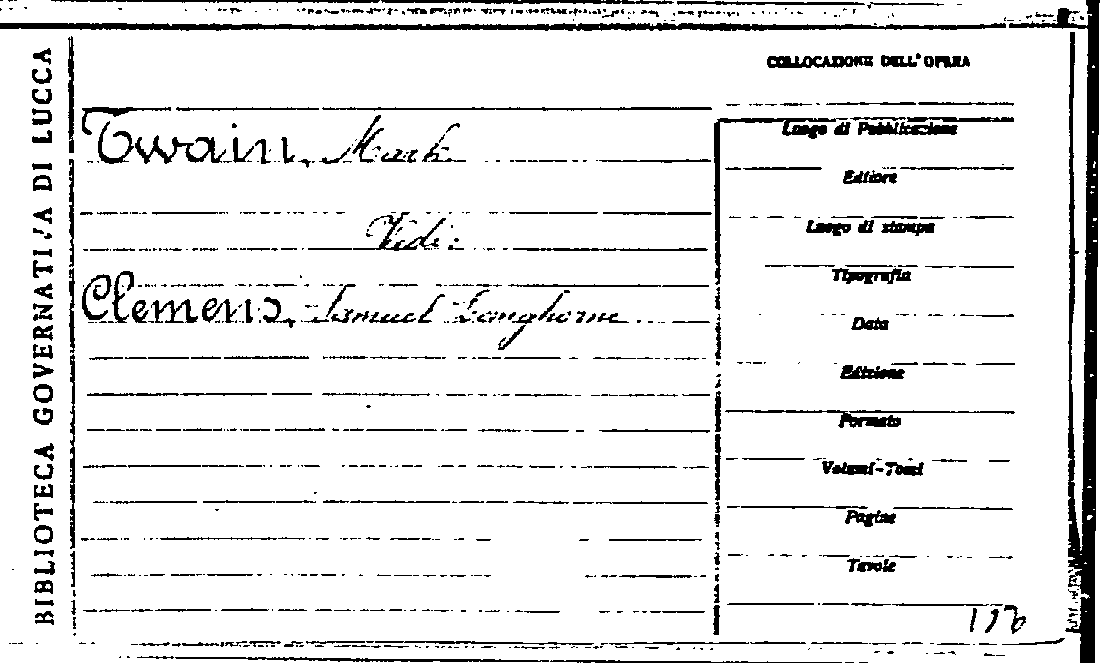 BIBLIOTECA GOVERNATIVA DI LUCCA
COLLOCAZIONE DELL'OPERA
Twain, Mark
Vedi:
Clemens, Samuel Langhorne
Luogo di Pubblicazione
Editore
Luogo di stampa
Tipografia
Data
Edizione
Formato
Volumi-Tomi
Pagine
Tavole